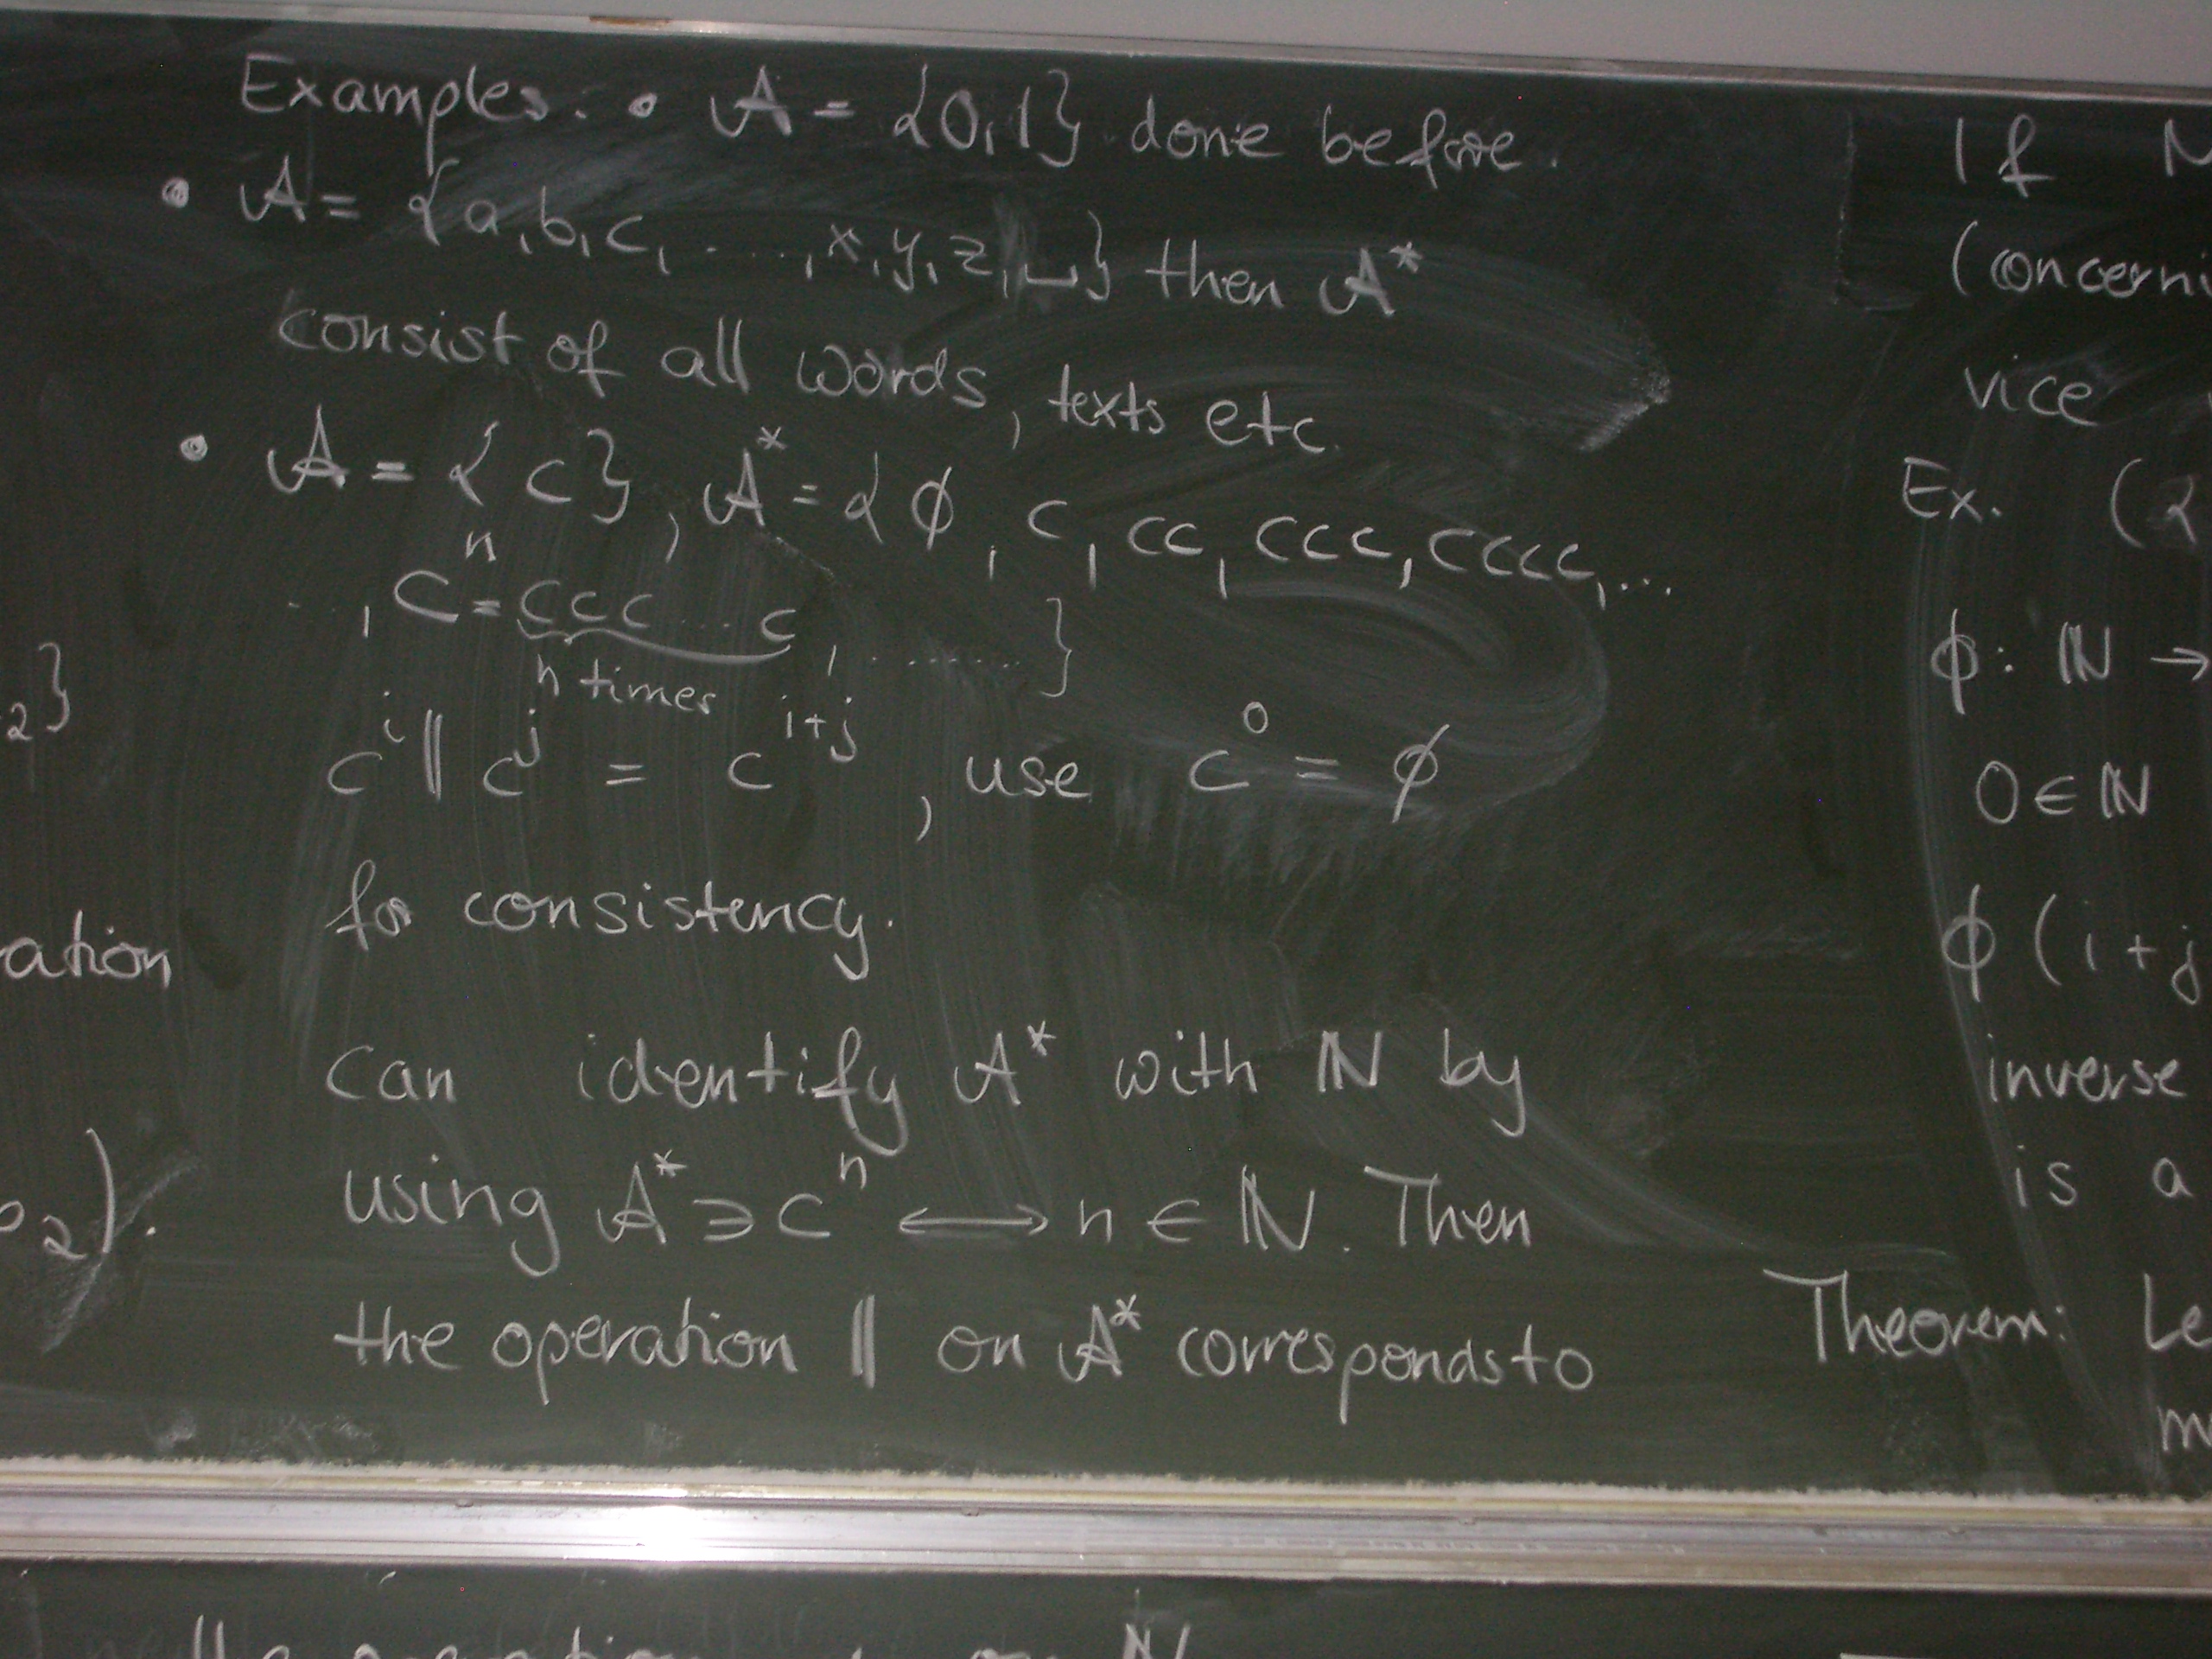 Examples: • A = {0,1} done before.
• A = {a,b,c, ....., x,y,z,␣} then A*
consist of all words, texts etc.
• A = {c}, A* = {ϕ, c, cc, ccc, cccc, ...
.., cⁿ = ccc...c, ....... }
n times
cⁱ || cʲ = cⁱ⁺ʲ, use c⁰ = ϕ
for consistency.
can identify A* with ℕ by
using A* ∋ cⁿ ⟷ n ∈ ℕ. Then
the operation || on A* corresponds to
2}
ation
2).
If
(concerni
vice
Ex. (2
ϕ: ℕ →
0 ∈ ℕ
ϕ(i+j
inverse
is a
Theorem: Le
m